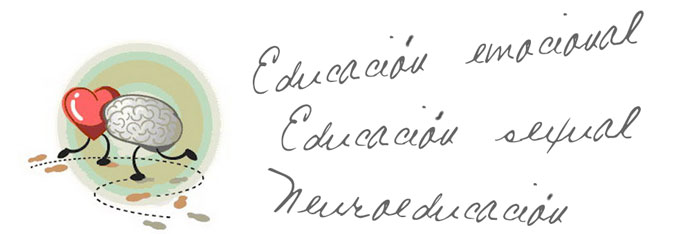 Educación emocional
Educación sexual
Neuroeducación